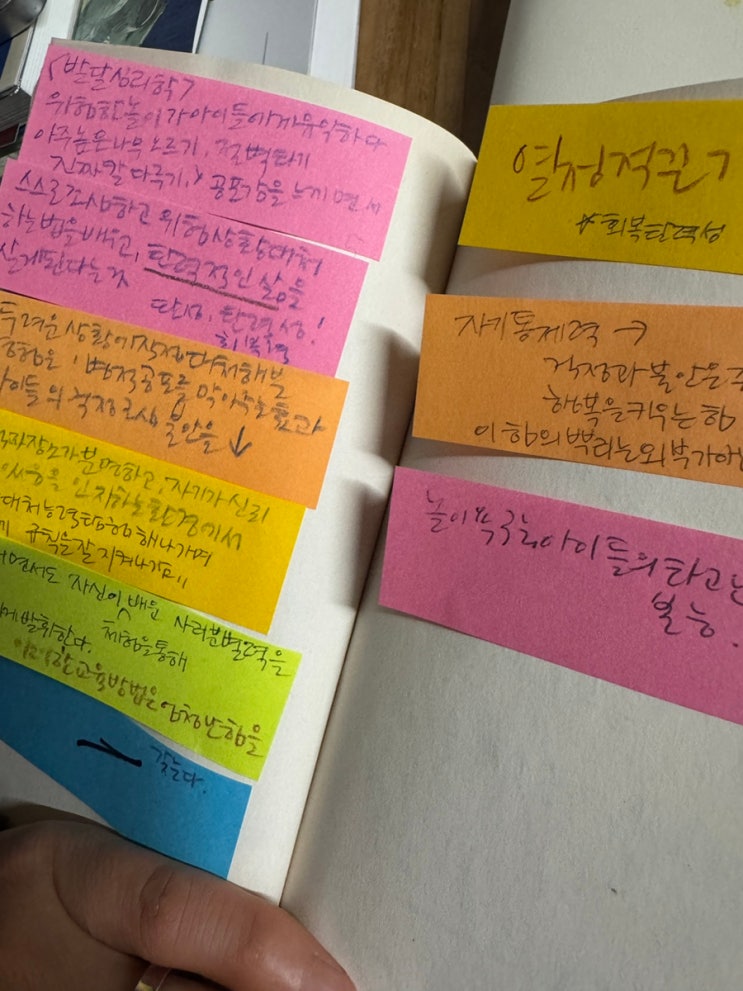 <발달심리학>
위험한놀이가아이들에게유익하다
아주높은나무오르기, 절벽타기
진짜칼다루기, > 공포감을 느끼면서
스스로조심하고 위험상황대처
하는법을배우고, 탄력적인 삶을
살게된다는것
탄성, 탄력성!
회복력
두려운상황에직접대처해봄
경험은 병적공포를 막아주는효과
아이들의 걱정근심 불안을 ↓
가분명하고, 자기가신뢰
있음을 인지하는환경에서
대처능력탐험해나가며
규칙을잘지켜나감..
면서도 자신이 배운 사리분별력을
발휘한다. 체험을통해
이러한교육방법은엄청난힘을
갖는다.
열정적끈기
*회복탄력성
자기통제력 →
걱정과불안은
행복을키우는힘
이 힘의뿌리는외부가아
놀이욕구는아이들의타고난
본능.